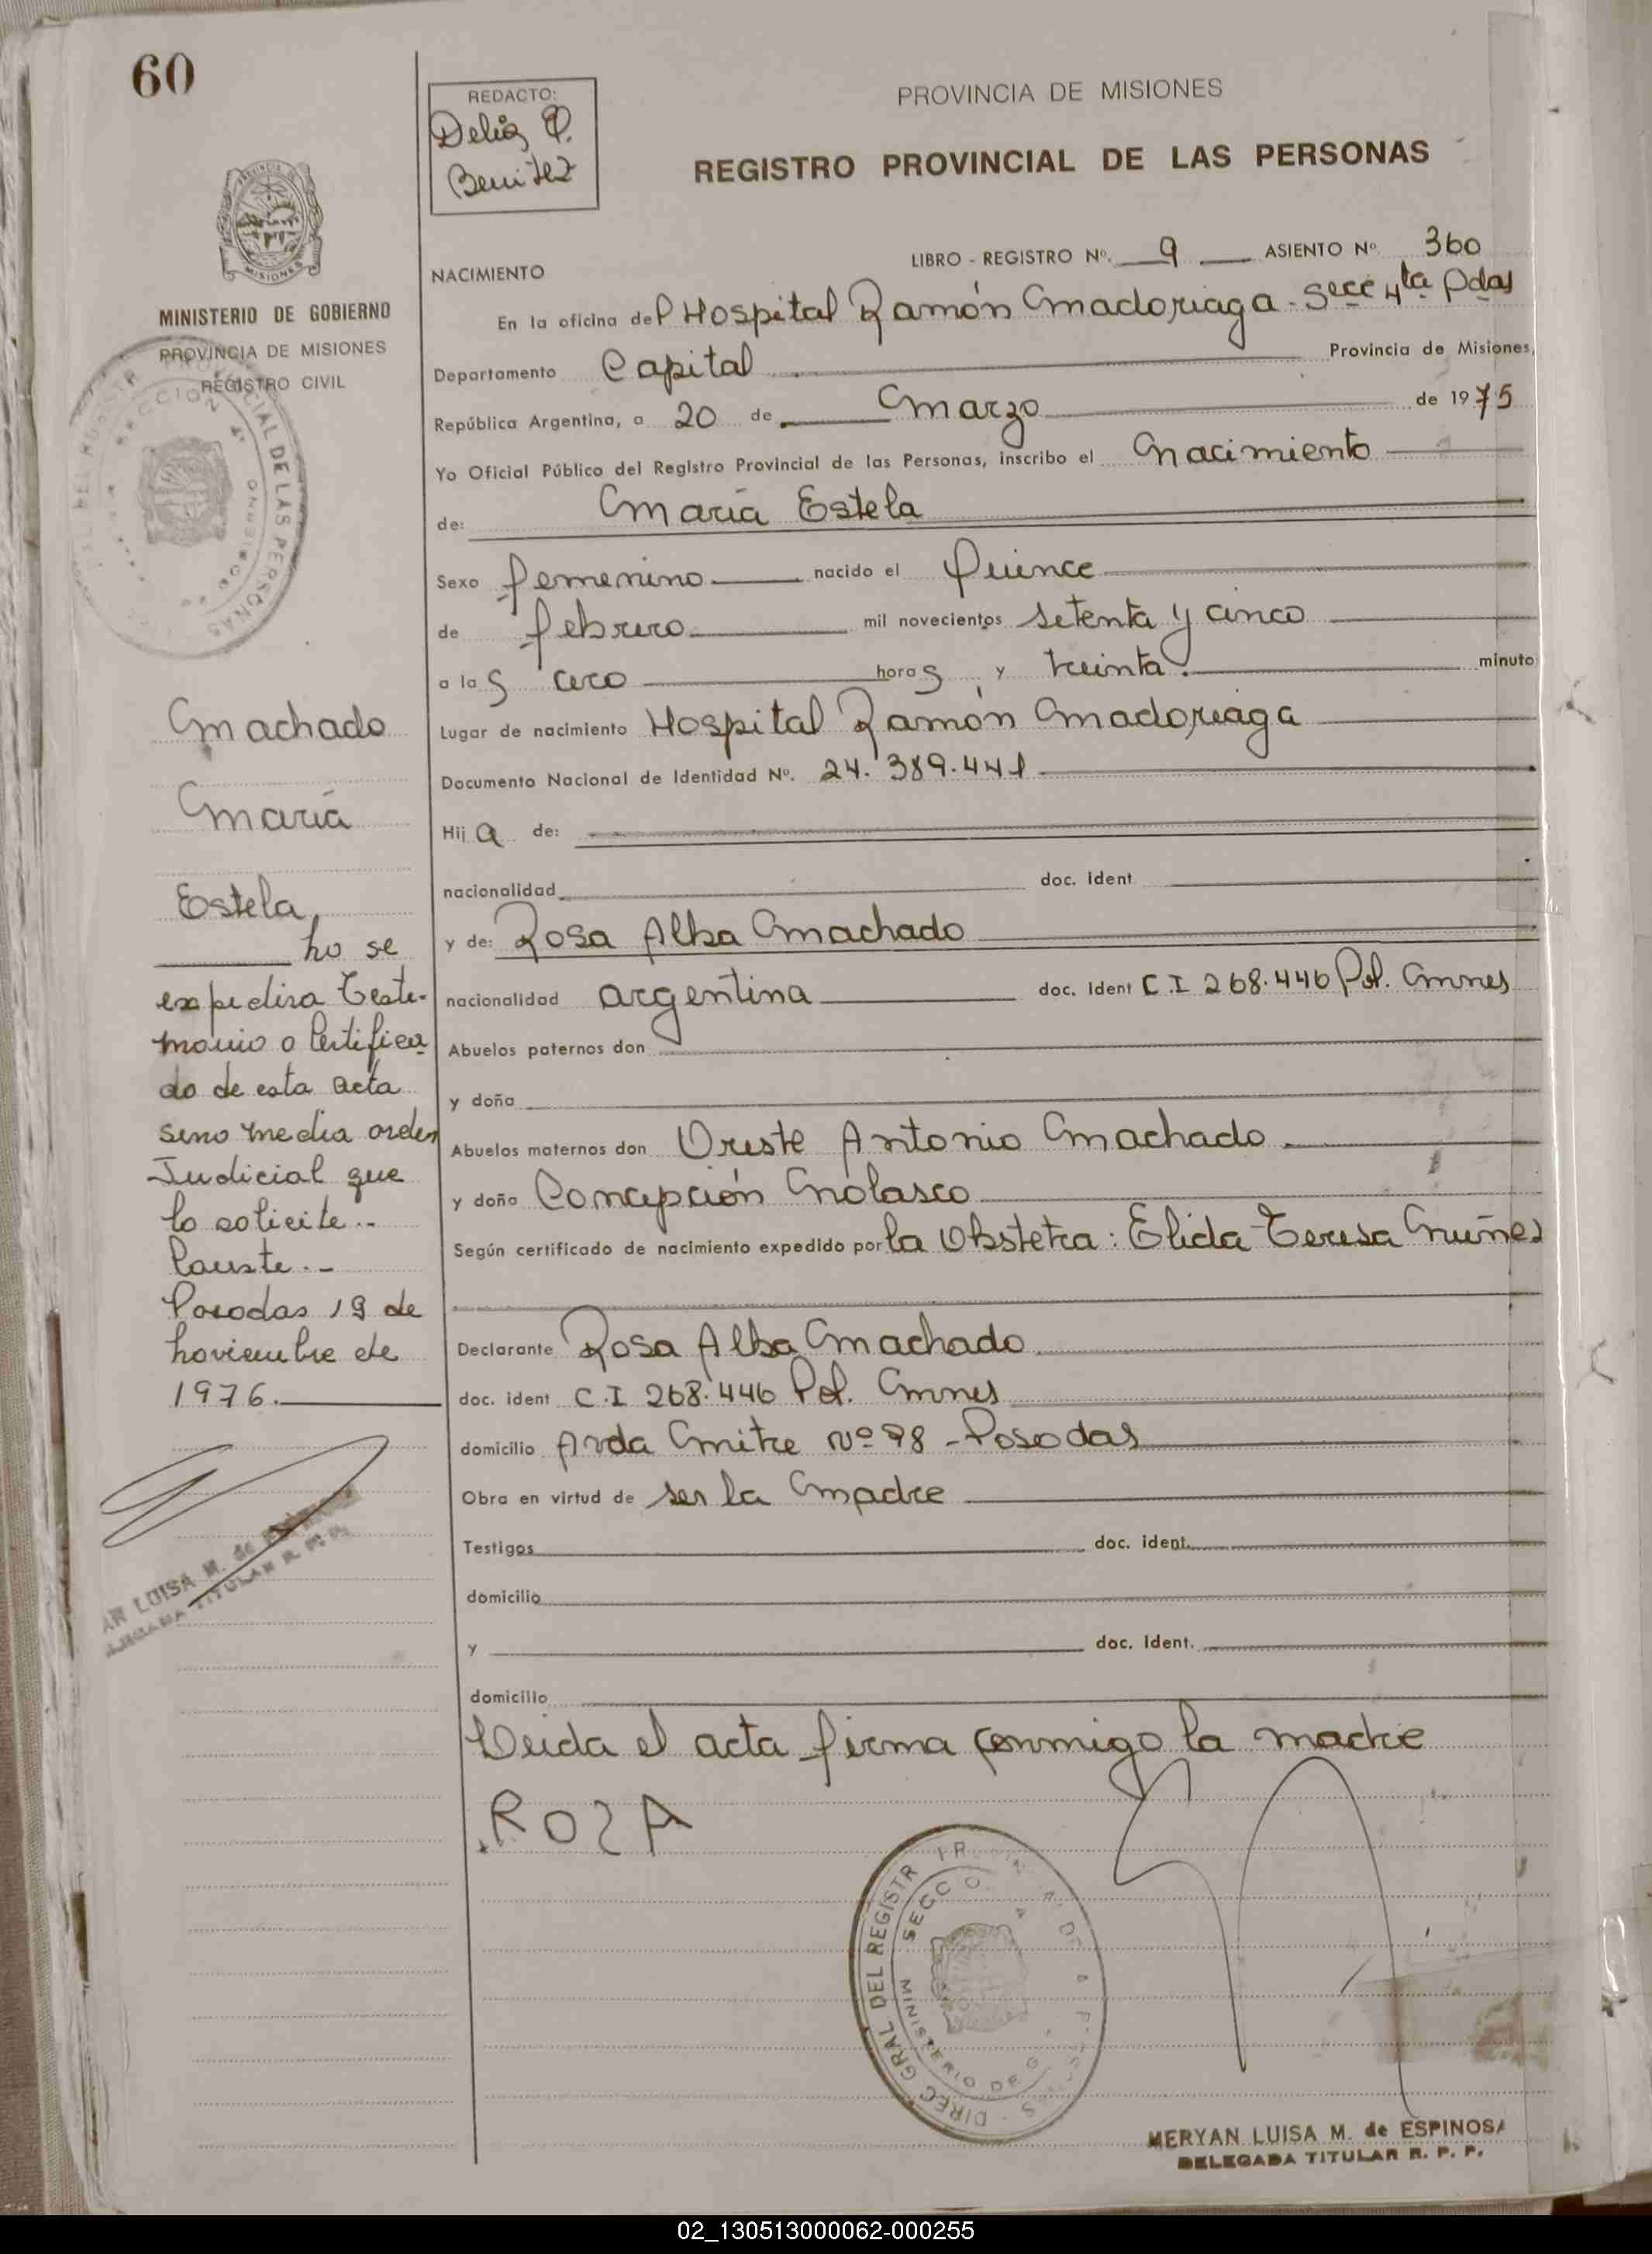 60
REDACTO:
Delia P.
Benitez
PROVINCIA DE MISIONES
REGISTRO PROVINCIAL DE LAS PERSONAS
MINISTERIO DE GOBIERNO
PROVINCIA DE MISIONES
REGISTRO CIVIL
LIBRO - REGISTRO Nº. 9 ASIENTO Nº 360
NACIMIENTO
En la oficina del Hospital Ramón Madoriaga - Secc 4ta Pdas
Departamento Capital Provincia de Misiones,
República Argentina, a 20 de Marzo de 1975
Yo Oficial Público del Registro Provincial de las Personas, inscribo el Nacimiento
de: María Estela
Sexo femenino nacido el Quince
de febrero mil novecientos setenta y cinco
a las cero horas y treinta minuto
Lugar de nacimiento Hospital Ramón Madoriaga
Documento Nacional de Identidad Nº. 24.389.441
Hija de:
nacionalidad doc. ident
y de: Rosa Alba Machado
nacionalidad argentina doc. Ident C.I 268.446 Pol. Mnes
Abuelos paternos don
y doña
Abuelos maternos don Oreste Antonio Machado
y doña Concepción Nolasco
Según certificado de nacimiento expedido por la Obstetra: Elida Teresa Nuñez
Declarante Rosa Alba Machado
doc. ident C.I 268.446 Pol. Mnes
domicilio Avda Mitre Nº 98 - Posadas
Obra en virtud de ser la Madre
Testigos doc. ident.
domicilio
y doc. Ident.
domicilio
Leida el acta firma conmigo la madre
ROSA
MERYAN LUISA M. de ESPINOSA
DELEGADA TITULAR R. P. P.
Machado
María
Estela
No se
expedira Testi-
monio o Certifica
do de esta acta
sino media orden
Judicial que
lo solicite.-
Conste.-
Posadas 19 de
noviembre de
1976.
LUISA M. de
TITULAR R. P. P.
DIREC GRAL DEL REGISTR
SECC
MINISTERIO DE
02_130513000062-000255